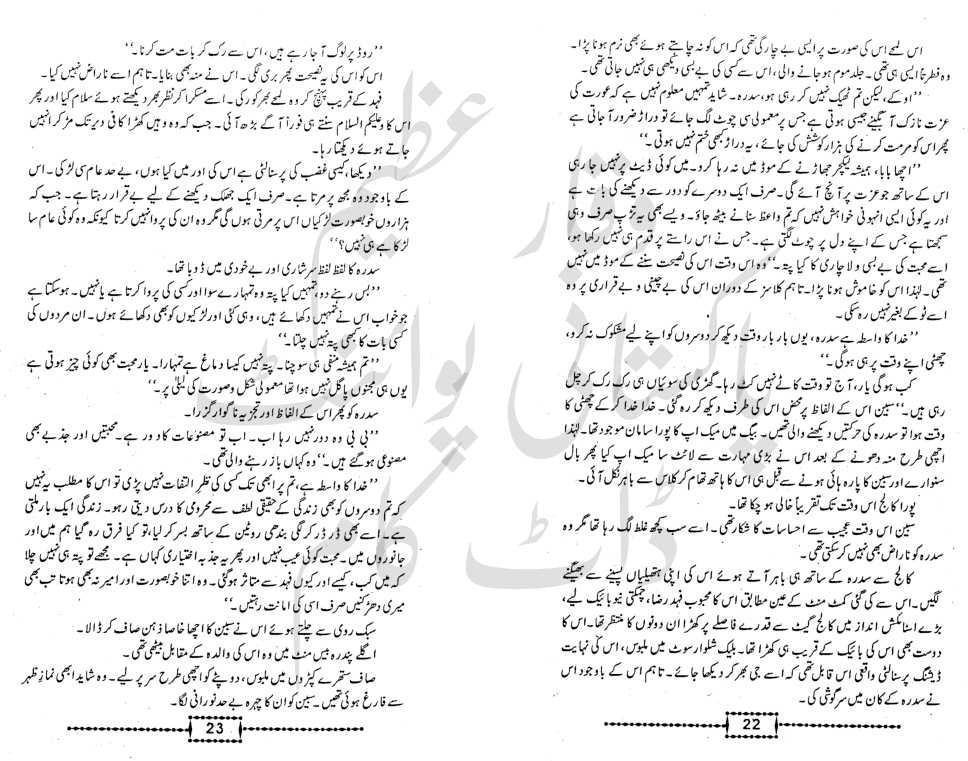 اس لمحے اس کی صورت پر ایسی بے چارگی تھی کہ اس کو نہ چاہتے ہوئے بھی نرم ہونا پڑا۔
وہ فطرتاً ایسی ہی تھی۔ جلد موم ہو جانے والی، اس سے کسی کی بے بسی دیکھی ہی نہیں جاتی تھی۔
’’او کے، لیکن تم ٹھیک نہیں کر رہی ہو، سدرہ۔ شاید تمہیں معلوم نہیں ہے کہ عورت کی
عزت نازک آبگینے جیسی ہوتی ہے جس پر معمولی سی چوٹ لگ جائے تو دراڑ ضرور آ جاتی ہے
پھر اس کو مرمت کرنے کی ہزار کوشش کی جائے، یہ دراڑ کبھی ختم نہیں ہوتی۔‘‘
’’اچھا بابا، ہمیشہ لیکچر جھاڑنے کے موڈ میں نہ رہا کرو۔ میں کوئی ڈیٹ پر نہیں جا رہی
اس کے ساتھ جو عزت پر آنچ آئے گی۔ صرف ایک دوسرے کو دور سے دیکھنے کی بات ہے
اور یہ کوئی ایسی انہونی خواہش نہیں کہ تم واعظ سنانے بیٹھ جاؤ۔ ویسے بھی یہ تڑپ صرف وہی
سمجھتا ہے جس کے اپنے دل پر چوٹ لگتی ہے۔ جس نے اس راستے پر قدم ہی نہیں رکھا ہو،
اسے محبت کی بے بسی و لاچاری کا کیا پتہ۔‘‘ وہ اس وقت اس کی نصیحت سننے کے موڈ میں نہیں
تھی۔ لہٰذا اس کو خاموش ہونا پڑا۔ تاہم کلاسز کے دوران اس کی بے چینی و بے قراری پر وہ
اسے ٹوکے بغیر نہیں رہ سکی۔
’’خدا کا واسطہ ہے سدرہ، یوں بار بار وقت دیکھ کر دوسروں کو اپنے لیے مشکوک نہ کرو،
چھٹی اپنے وقت پر ہی ہو گی۔‘‘
کب ہو گی یار، آج تو وقت کاٹے نہیں کٹ رہا۔ گھڑی کی سوئیاں ہی رک رک کر چل
رہی ہیں۔‘‘ سبین اس کے الفاظ پر محض اس کی طرف دیکھ کر رہ گئی۔ خدا خدا کر کے چھٹی کا
وقت ہوا تو سدرہ کی حرکتیں دیکھنے والی تھیں۔ بیگ میں میک اپ کا پورا سامان موجود تھا۔ لہٰذا
اچھی طرح منہ دھونے کے بعد اس نے بڑی مہارت سے لائٹ سا میک اپ کیا پھر بال
سنوارے اور سبین کا پارہ ہائی ہونے سے قبل ہی اس کا ہاتھ تھام کر کلاس سے باہر نکل آئی۔
پورا کالج اس وقت تک تقریباً خالی ہو چکا تھا۔
سبین اس وقت عجیب سے احساسات کا شکار تھی۔ اسے سب کچھ غلط لگ رہا تھا مگر وہ
سدرہ کو ناراض بھی نہیں کر سکتی تھی۔
کالج سے سدرہ کے ساتھ ہی باہر آتے ہوئے اس کی اپنی ہتھیلیاں پسینے سے بھیگنے
لگیں۔ اس سے کی گئی کمٹ منٹ کے عین مطابق اس کا محبوب فہد رضا، چمکتی نیو بائیک لیے،
بڑے اسٹائلش انداز میں کالج گیٹ سے قدرے فاصلے پر کھڑا ان دونوں کا منتظر تھا۔ اس کا
دوست بھی اس کی بائیک کے قریب ہی کھڑا تھا۔ بلیک شلوار سوٹ میں ملبوس، اس کی نہایت
ڈیشنگ پرسنالٹی واقعی اس قابل تھی کہ اسے جی بھر کر دیکھا جائے۔ تاہم اس کے باوجود اس
نے سدرہ کے کان میں سرگوشی کی۔
22
’’روڈ پر لوگ آ جا رہے ہیں، اس سے رک کر بات مت کرنا۔‘‘
اس کو اس کی یہ نصیحت پھر بری لگی۔ اس نے منہ بھی بنایا۔ تاہم اسے ناراض نہیں کیا۔
فہد کے قریب پہنچ کر وہ لمحے بھر کو رکی۔ اسے مسکرا کر نظر بھر دیکھتے ہوئے سلام کیا اور پھر
اس کا وعلیکم السلام سنتے ہی فوراً آگے بڑھ آئی۔ جب کہ وہ وہیں کھڑا کافی دیر تک مڑ کر انہیں
جاتے ہوئے دیکھتا رہا۔
’’دیکھا، کیسی غضب کی پرسنالٹی ہے اس کی اور میں کیا ہوں، بے حد عام سی لڑکی۔ اس
کے باوجود وہ مجھ پر مرتا ہے۔ صرف ایک جھلک دیکھنے کے لیے بے قرار رہتا ہے۔ جب کہ
ہزاروں خوبصورت لڑکیاں اس پر مرتی ہوں گی مگر وہ ان کی پروا نہیں کرتا کیونکہ وہ کوئی عام سا
لڑکا ہے ہی نہیں؟‘‘
سدرہ کا لفظ لفظ سرشاری اور بے خودی میں ڈوبا تھا۔
’’بس رہنے دو، تمہیں کیا پتہ وہ تمہارے سوا اور کسی کی پروا کرتا ہے یا نہیں۔ ہو سکتا ہے
جو خواب اس نے تمہیں دکھائے ہیں، وہی کئی اور لڑکیوں کو بھی دکھائے ہوں۔ ان مردوں کی
کسی بات کا بھی پتہ نہیں چلتا۔‘‘
’’تم ہمیشہ منفی ہی سوچنا۔ پتہ نہیں کیسا دماغ ہے تمہارا۔ یار محبت بھی کوئی چیز ہوتی ہے
یوں ہی مجنوں پاگل نہیں ہوا تھا معمولی شکل و صورت کی لیلیٰ پر۔‘‘
سدرہ کو پھر اس کے الفاظ اور تجزیہ ناگوار گزرا۔
’’بی بی وہ دور نہیں رہا اب۔ اب تو مصنوعات کا دور ہے۔ محبتیں اور جذبے بھی
مصنوعی ہو گئے ہیں۔‘‘ وہ کہاں باز رہنے والی تھی۔
’’خدا کا واسطہ ہے، تم پر ابھی تک کسی کی نظر التفات نہیں پڑی تو اس کا مطلب یہ نہیں
کہ تم دوسروں کو بھی زندگی کے حقیقی لطف سے محرومی کا درس دیتی رہو۔ زندگی ایک بار ملتی
ہے۔ اسے بھی ڈر ڈر کر لگی بندھی روٹین کے ساتھ بسر کر لیا، تو کیا فرق رہ گیا ہم میں اور
جانوروں میں۔ محبت کوئی عیب نہیں اور پھر یہ جذبہ اختیاری کہاں ہے۔ مجھے تو پتہ ہی نہیں چلا
کہ میں کب، کیسے اور کیوں فہد سے متاثر ہو گئی۔ وہ اتنا خوبصورت اور امیر نہ بھی ہوتا تب بھی
میری دھڑکنیں صرف اسی کی امانت رہتیں۔‘‘
سبک روی سے چلتے ہوئے اس نے سبین کا اچھا خاصا ذہن صاف کر ڈالا۔
اگلے پندرہ بیس منٹ میں وہ اس کی والدہ کے مقابل بیٹھی تھی۔
صاف ستھرے کپڑوں میں ملبوس، دوپٹے کو اچھی طرح سر پر لیے۔ وہ شاید ابھی نماز ظہر
سے فارغ ہوئی تھیں۔ سبین کو ان کا چہرہ بے حد نورانی لگا۔
23